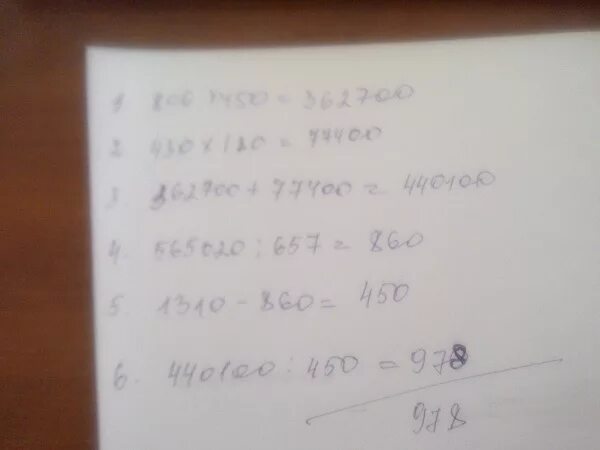 1. 806 × 450 = 362700
2. 430 × 180 = 77400
3. 362700 + 77400 = 440100
4. 565020 : 657 = 860
5. 1310 - 860 = 450
6. 440100 : 450 = 978
978